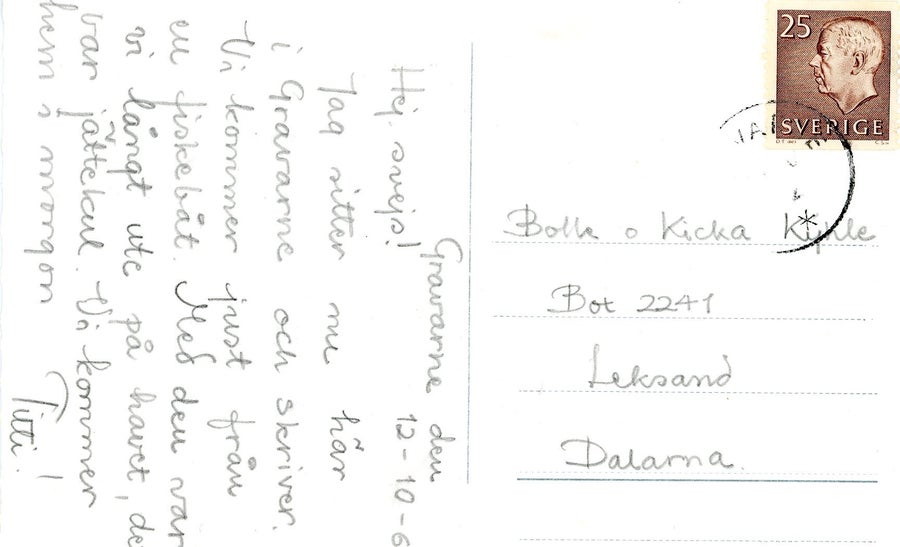 Gravarne den
12-10-6
Hej svejs!
Jag sitter nu här
i Gravarne och skriver.
Vi kommer just från
en fiskebåt. Med den var
vi långt ute på havet, de
var jättekul. Vi kommer
hem s morgon
Titti!
25
SVERIGE
Bolle o Kicka
Box 2241
Leksand
Dalarna.